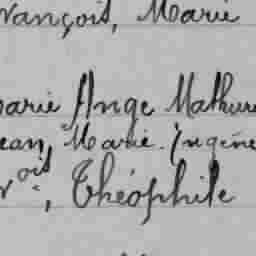 rançois, Marie
arie Ange Mathur
ean, Marie. Eugène
r ois, Théophile